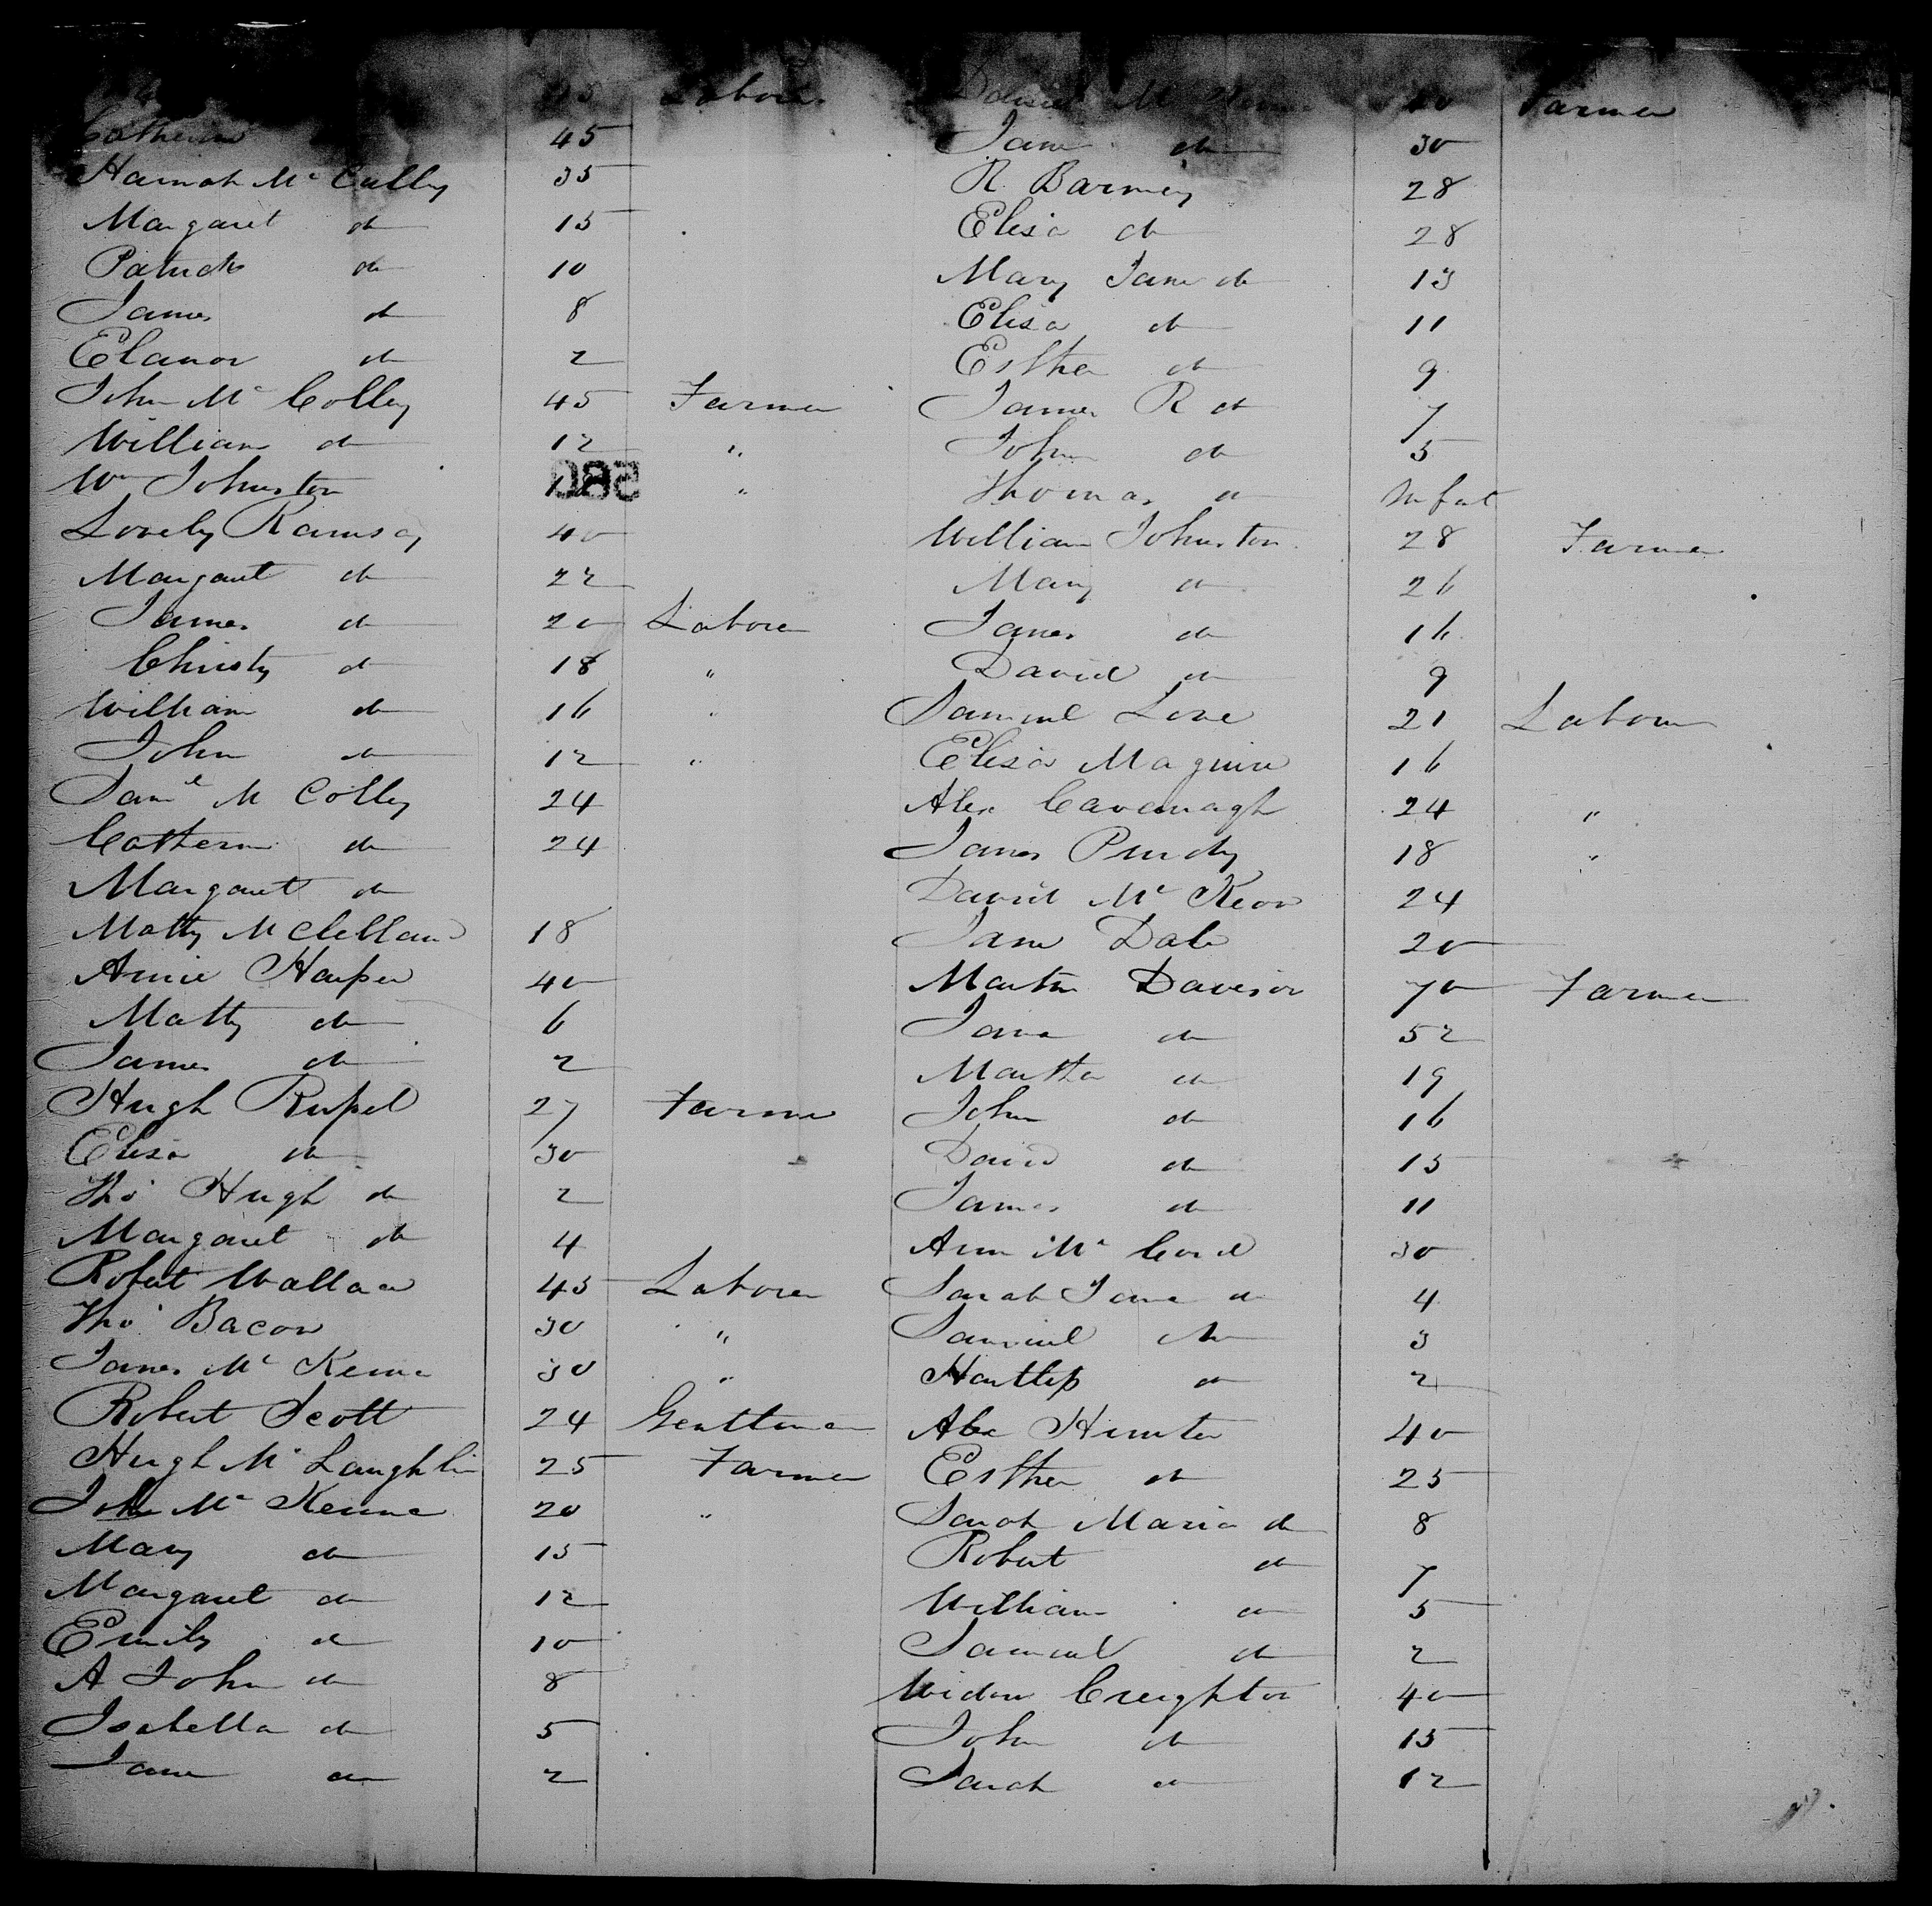 45 Laborer
Catherine do 45
Hannah Mc Culley 35
Margaret do 15
Patrick do 10
James do 8
Elanor do 2
John Mc Colley 45 Farmer
William do 12 "
Wm Johnston "
Lovely Ramsay 40
Margaret do 22
James do 20 Laborer
Christy do 18 "
William do 16 "
John do 12 "
Saml M Colley 24
Catherine do 24
Margaret do
Matty McClelland 18
Annie Harper 40
Matty do 6
James do 2
Hugh Russel 27 Farmer
Eliza do 30
Tho' Hugh do 2
Margaret do 4
Robert Wallace 45 Laborer
Tho' Bacon 30 "
James Mc Kenna 30 "
Robert Scott 24 Gentleman
Hugh Mc Laughlin 25 Farmer
John Mc Kenna 20 "
Mary do 15
Margaret do 12
Emily do 10
A John do 8
Isabella do 5
Jane do 2
Daniel Mc Farmer
Jane do 30
R. Barmey 28
Eliza do 28
Mary Jane do 13
Eliza do 11
Esther do 9
James R do 7
John do 5
Thomas do Infant
William Johnston 28 Farmer
Mary do 26
James do 16
David do 9
Samuel Love 21 Laborer
Eliza Maguire 16
Alex Cavanagh 24 "
James Purdy 18 "
David Mc Keon 24
Jane Dale 20
Martin Davison 70 Farmer
Jane do 52
Martha do 19
John do 16
David do 15
James do 11
Ann Mc Cord 30
Sarah Jane do 4
Samuel do 3
Hartley do 2
Alex Hunter 40
Esther do 25
Sarah Maria do 8
Robert do 7
William do 5
Samuel do 2
Widow Creighton 40
John do 15
Sarah do 12